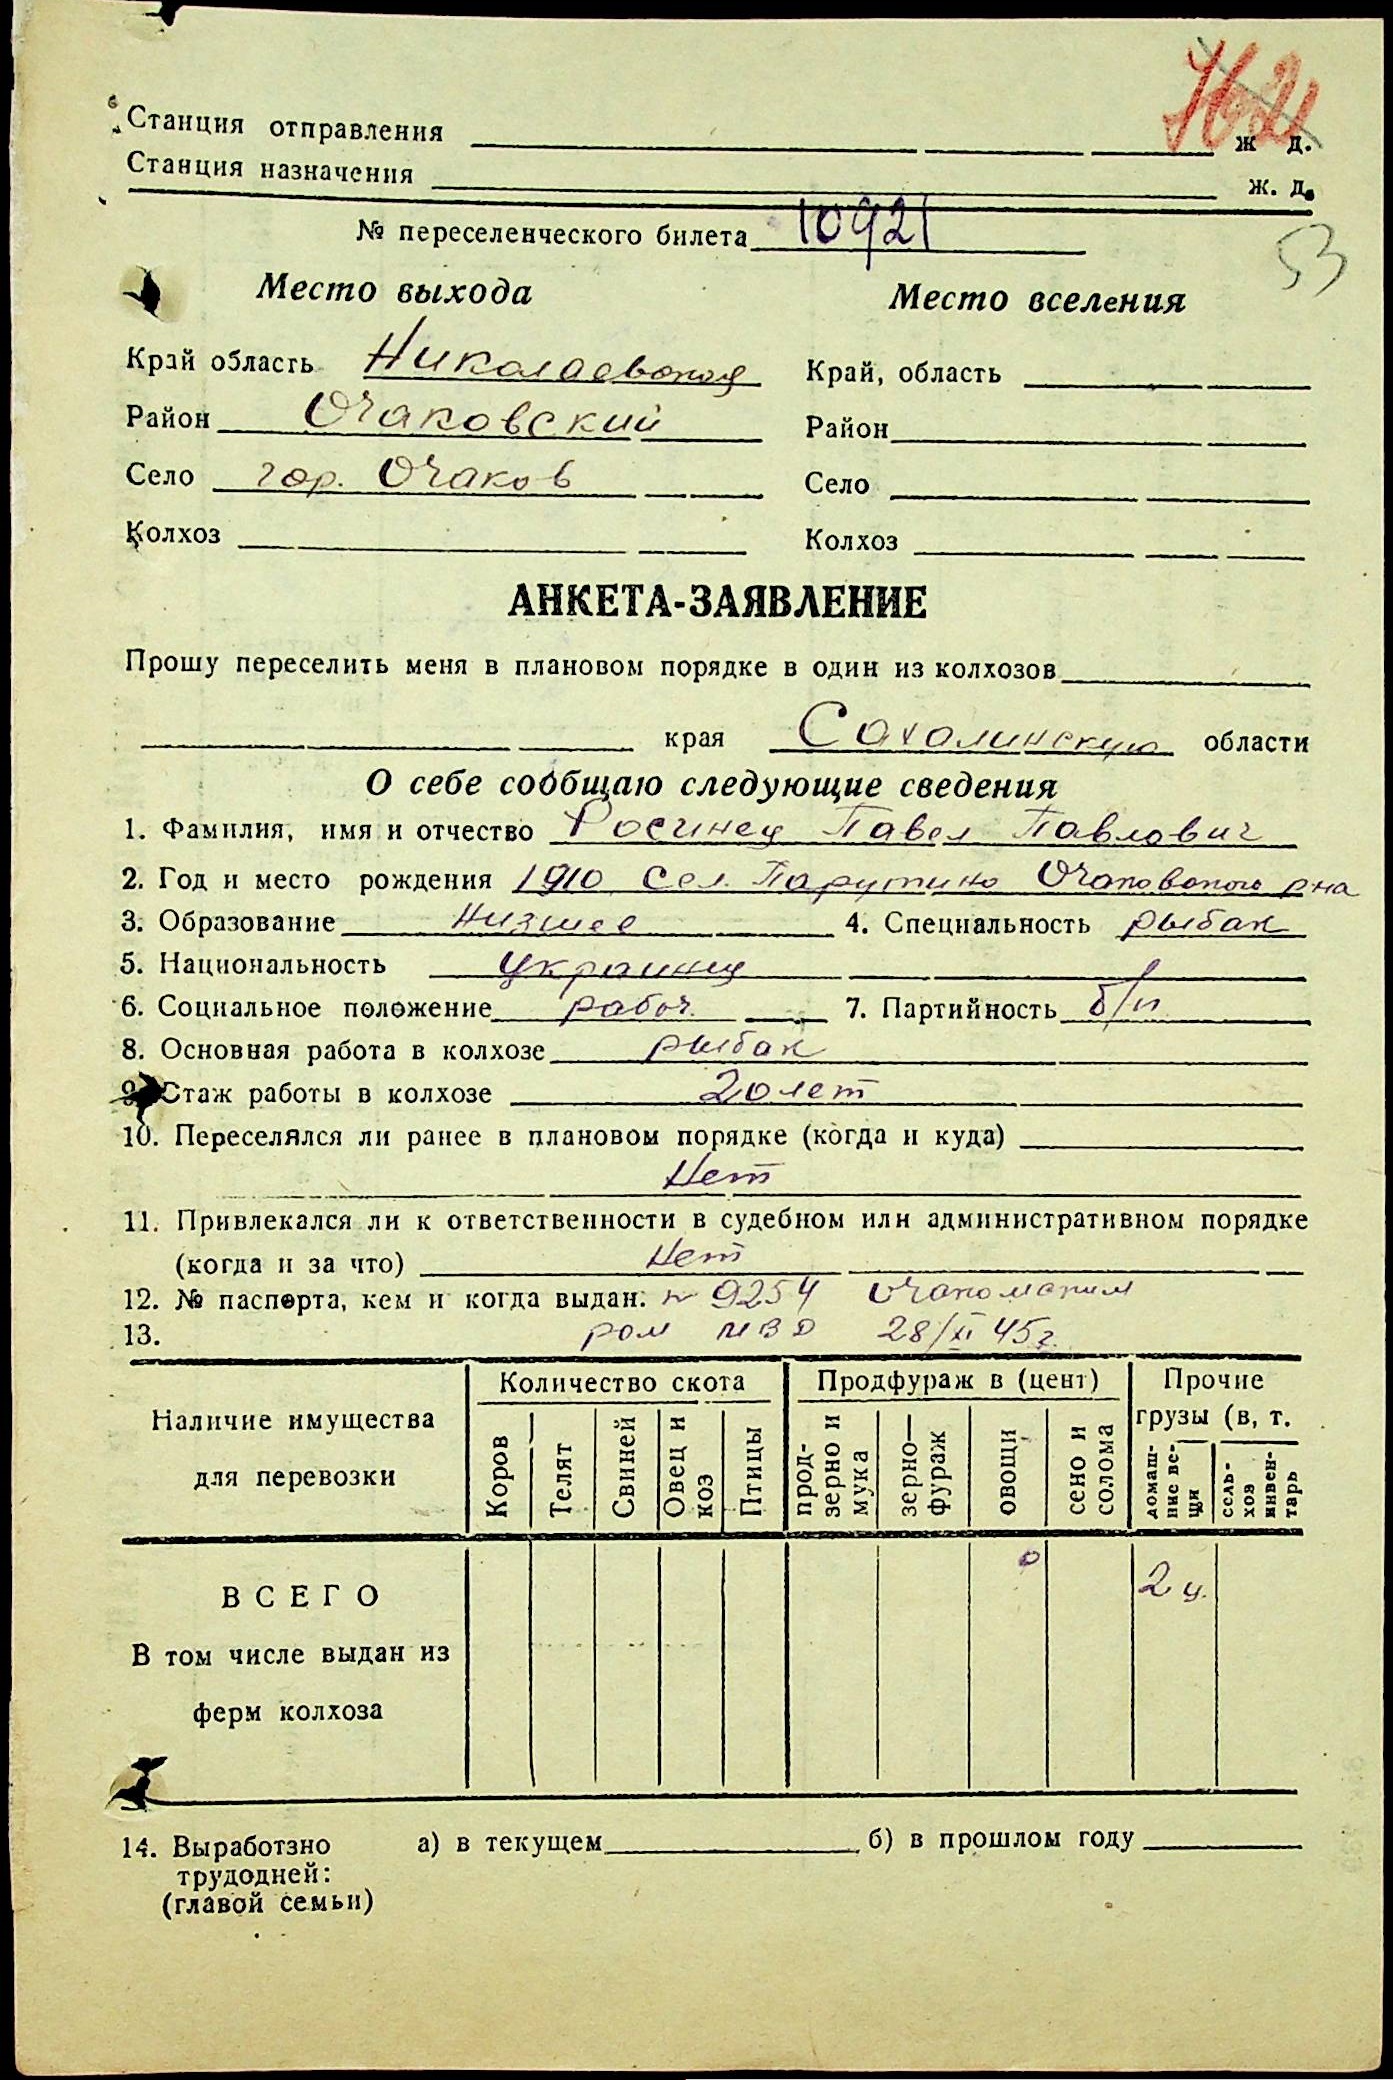 Станция отправления ж д.
Станция назначения ж. д.
№ переселенческого билета 10921
53
Место выхода Место вселения
Край область Николаевская Край, область
Район Очаковский Район
Село гор. Очаков Село
Колхоз Колхоз
АНКЕТА-ЗАЯВЛЕНИЕ
Прошу переселить меня в плановом порядке в один из колхозов
края Сахалинскую области
О себе сообщаю следующие сведения
1. Фамилия, имя и отчество Росинец Павел Павлович
2. Год и место рождения 1910 Сел. Парутино Очаковского р-на
3. Образование низшее 4. Специальность рыбак
5. Национальность украинец
6. Социальное положение рабоч. 7. Партийность б/п
8. Основная работа в колхозе рыбак
9. Стаж работы в колхозе 20 лет
10. Переселялся ли ранее в плановом порядке (когда и куда)
Нет
11. Привлекался ли к ответственности в судебном или административном порядке
(когда и за что) Нет
12. № паспорта, кем и когда выдан: № 9254
13. ром МВД 28/XI 45 г.
Наличие имущества для перевозки
Количество скота
Продфураж в (цент)
Прочие грузы (в, т.
Коров
Телят
Свиней
Овец и коз
Птицы
прод-зерно и мука
зерно—фураж
овощи
сено и солома
домаш-ние ве-щи
сель-хоз инвен-тарь
ВСЕГО 2 ц.
В том числе выдан из
ферм колхоза
14. Выработзно а) в текущем б) в прошлом году
трудодней:
(главой семьи)